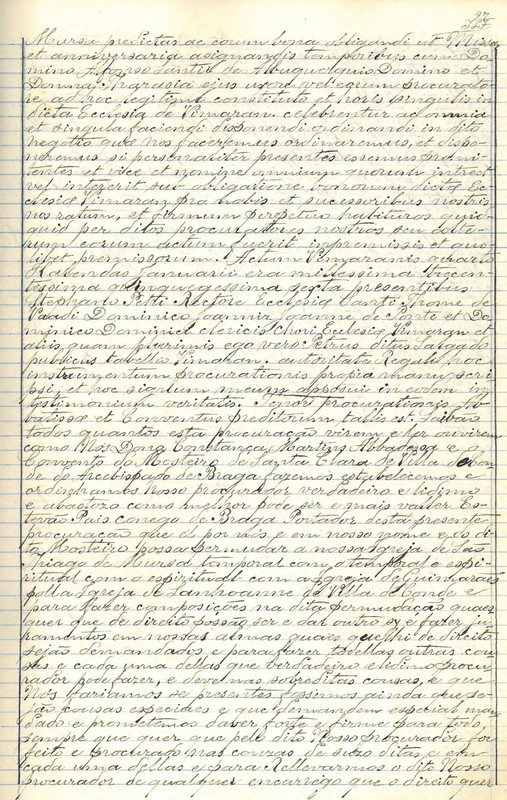 27
Mursa predictas ac eorum bona obligandi ut Missas
et anniversaria asignandis temporibus cum Do
mino Afonso Santii de Albuquerquis Domino et
Domna Tharasia ejus uxore vel eorum procurato
re ad hoc legitime constituto et horis singulis in
dicta Ecclesia de Vimaran. celebrentur ac omnia
et singula faciendi disponendi ordinandi in dito
negotio quae nos faceremus ordinaremus, et dispo
neremus si personaliter presentes essemus promi
tentes et vice et nomine omnium quorum intrest
vel intererit sub obligatione bonorum dictae Ec
clesiae Vimaran pro nobis et successoribus nostris
nos ratum, et firmum perpetuo habituros quid
quid per ditos procuratores nostros seu alte
rum eorum actum fuerit in premissis et quo
libet premissorum. Actum Vimaranis quarto
Kalendas Januarii era milessima trecen
tessima quinquagessima sexta presentibus
Stephano Petri Rectore Ecclesiae Santi Jhome de
Dominico Joannis Joanne de Ponte et Do
minico Dominici clericis Chori Eclesiae Vimaran et
aliis quam plurimis ego vero Petrus ditus Salgado
publicus tabellio Vimaran. autoritate Regali hoc
instrumentum procurationis propia manu scri
psi, et hoc signum meum apposui in eodem in
testimonium veritatis. Tenor procurationis Ab
batissae et Conventus preditorum talis est. Saibão
todos quantos esta procuração virem e ler ouvirem
como Nós Dona Constança Martins Abbadessa e
Convento do Mosteiro de Santa Clara de Villa do Con
de do Arcebispado de Braga fazemos estabelecemos e
ordinhamos Nosso procurador verdadeiro e lidimo
e abastozo como melhor pode ser e mais valler Es
tevão Pais conego de Braga Portador desta presente
procuração que el por nós e em nosso nome e do di
to Mosteiro possa permudar a nossa Igreja de San
Thiago de Mursa temporal com o temporal e espi
ritual com o espiritual com a Igreja de Guimarães
polla Igreja de Sanhoanne de Villa de Conde e
para fazer composições na dita permudação quaes
quer que de direito possão ser e dar outro sy e fazer ju
ramentos em nossas almas quaes que lhi de direito
sejão demandados, e para fazer todellas outras cou
sas e cada uma dellas que verdadeiro e lidimo procu
rador pode fazer, e deve nas sobreditas cousas, e que
Nós fariamos se presentes fossimos ainda que se
jão cousas especiaes e que demandem especial man
dado e prometemos daver forte e firme para todo
sempre que quer que pelo dito Nosso procurador for
feito e procurado nas couzas de suzo ditas e em
cada uma dellas e para Rellevarmos o dito Nosso
procurador de qualquer encarrego que o direito quer